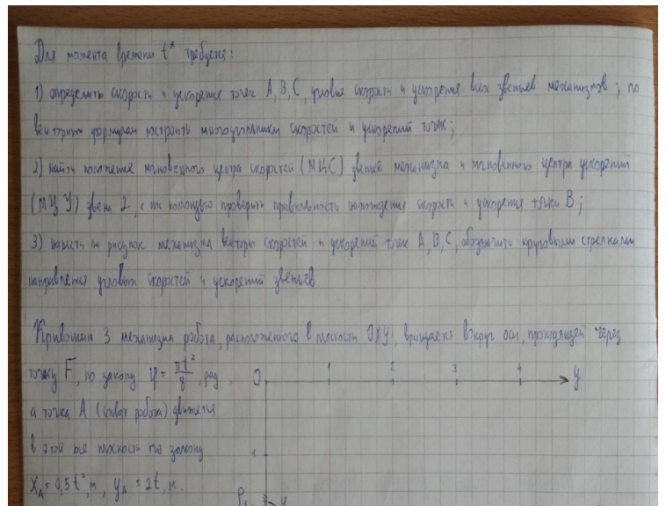 Для момента времени t* требуется:
1) определить скорости и ускорения точек A, B, C, угловые скорости и ускорения всех звеньев механизмов; по
векторным формулам построить многоугольники скоростей и ускорений точек;
2) найти положение мгновенного центра скоростей (МЦС) звеньев механизма и мгновенного центра ускорений
(МЦУ) звена 2, с их помощью проверить правильность нахождения скорости и ускорения точки B;
3) нанести на рисунок механизма векторы скоростей и ускорений точек A, B, C, обозначить круговыми стрелками
направления угловых скоростей и ускорений звеньев.
Кривошип 3 механизма робота, расположенного в плоскости OXY, вращается вокруг оси, проходящей через
точку F, по закону φ = πt²/8, рад,
O 1 2 3 4 y
а точка A (схват робота) движется
в этой же плоскости по закону
1
X_A = 0,5t², м, y_A = 2t, м.